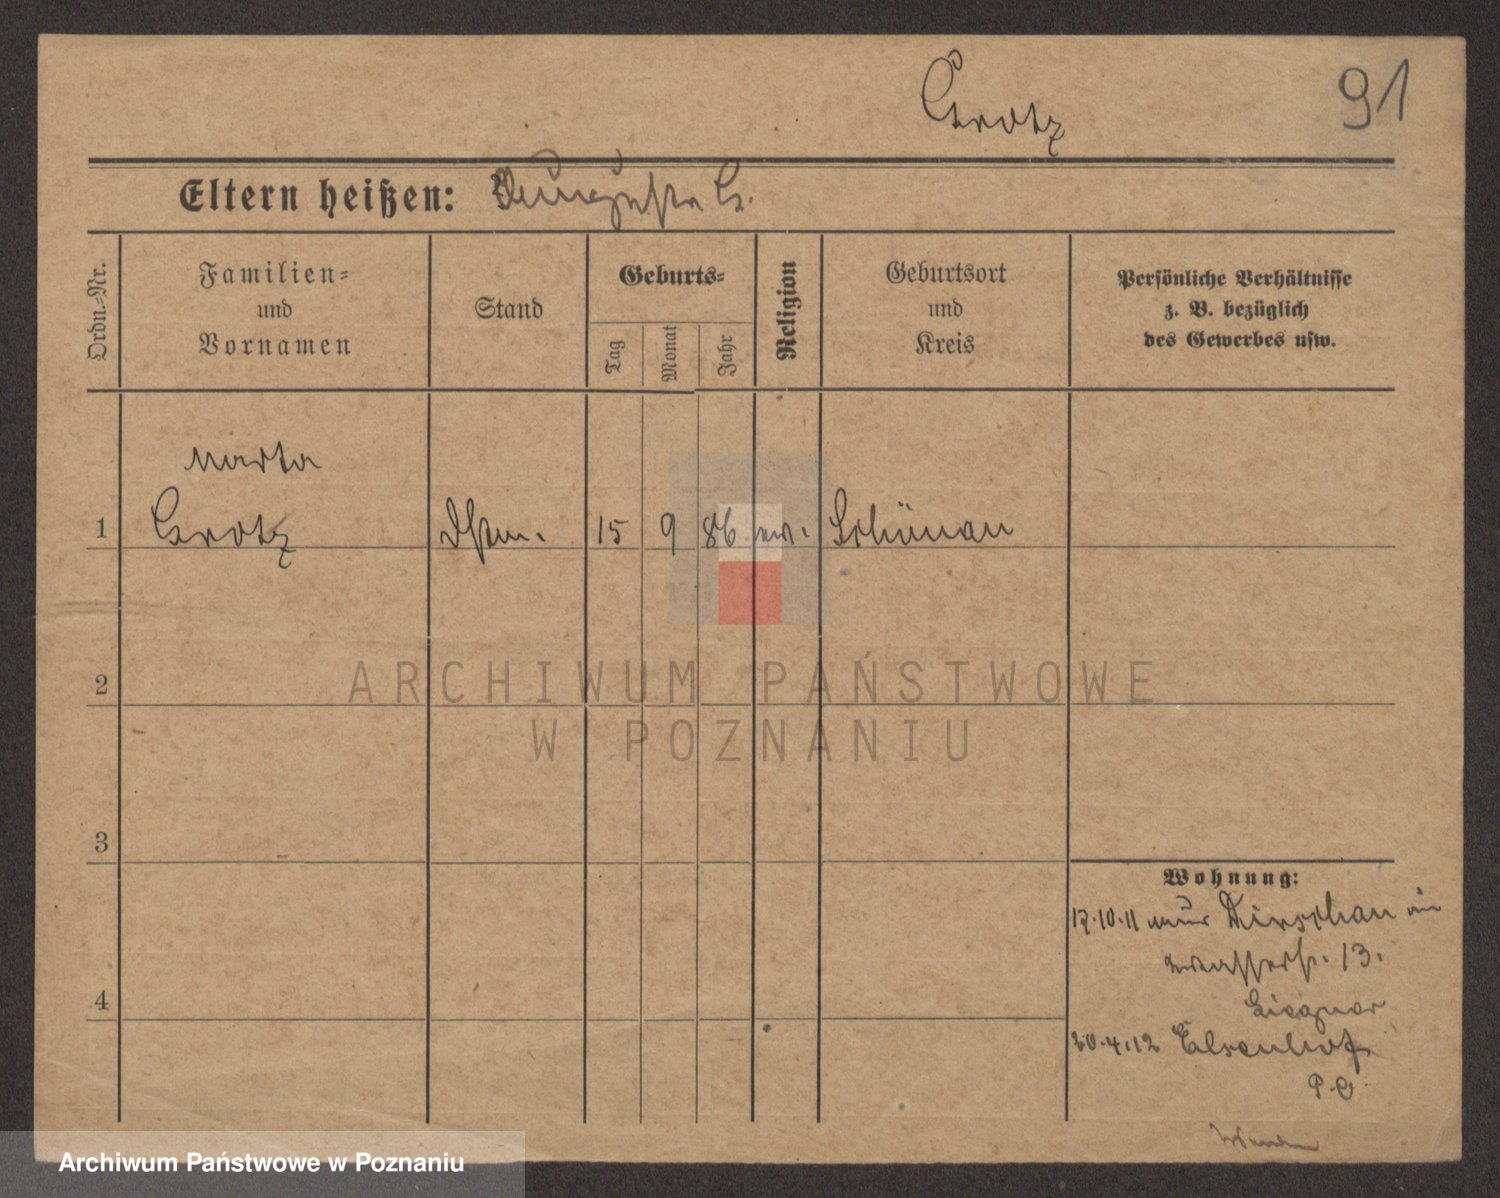 Grotz
91
Eltern heißen: Auguste G.
Ordn.-Nr.
Familien=
und
Vornamen
Stand
Geburts=
Tag
Monat
Jahr
Religion
Geburtsort
und
Kreis
Persönliche Verhältnisse
z. B. bezüglich
des Gewerbes usw.
Marta
1 Grotz 15 9 86 ev. Schönau
2
3
4
Wohnung:
17.10.11 Dirschau
Wasserstr. 13.
20.4.12 Elsenhof
ARCHIWUM PAŃSTWOWE
W POZNANIU
Archiwum Państwowe w Poznaniu